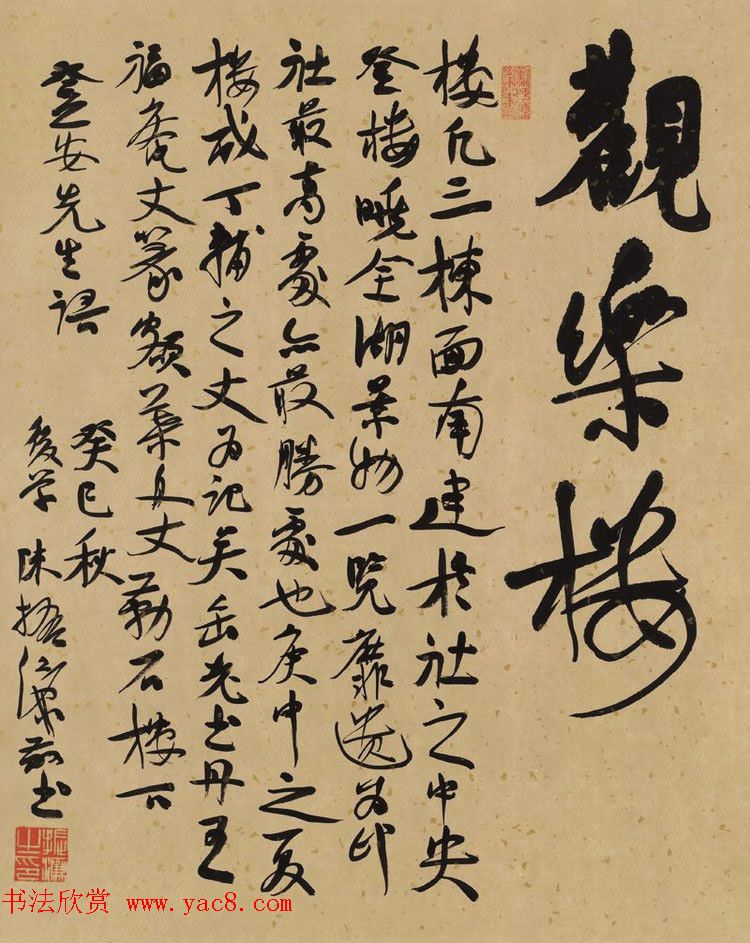 觀樂樓
樓凡三棟面南建於社之中央
登樓曉全湖景物一覽靡遺為印
社最高處亦最勝處也庚申之夏
樓成丁輔之丈為記吳缶老書丹王
福庵丈篆額葉舟丈勒石樓下
登安先生語
癸巳秋
後學陳振濂並書
书法欣赏 www.yac8.com